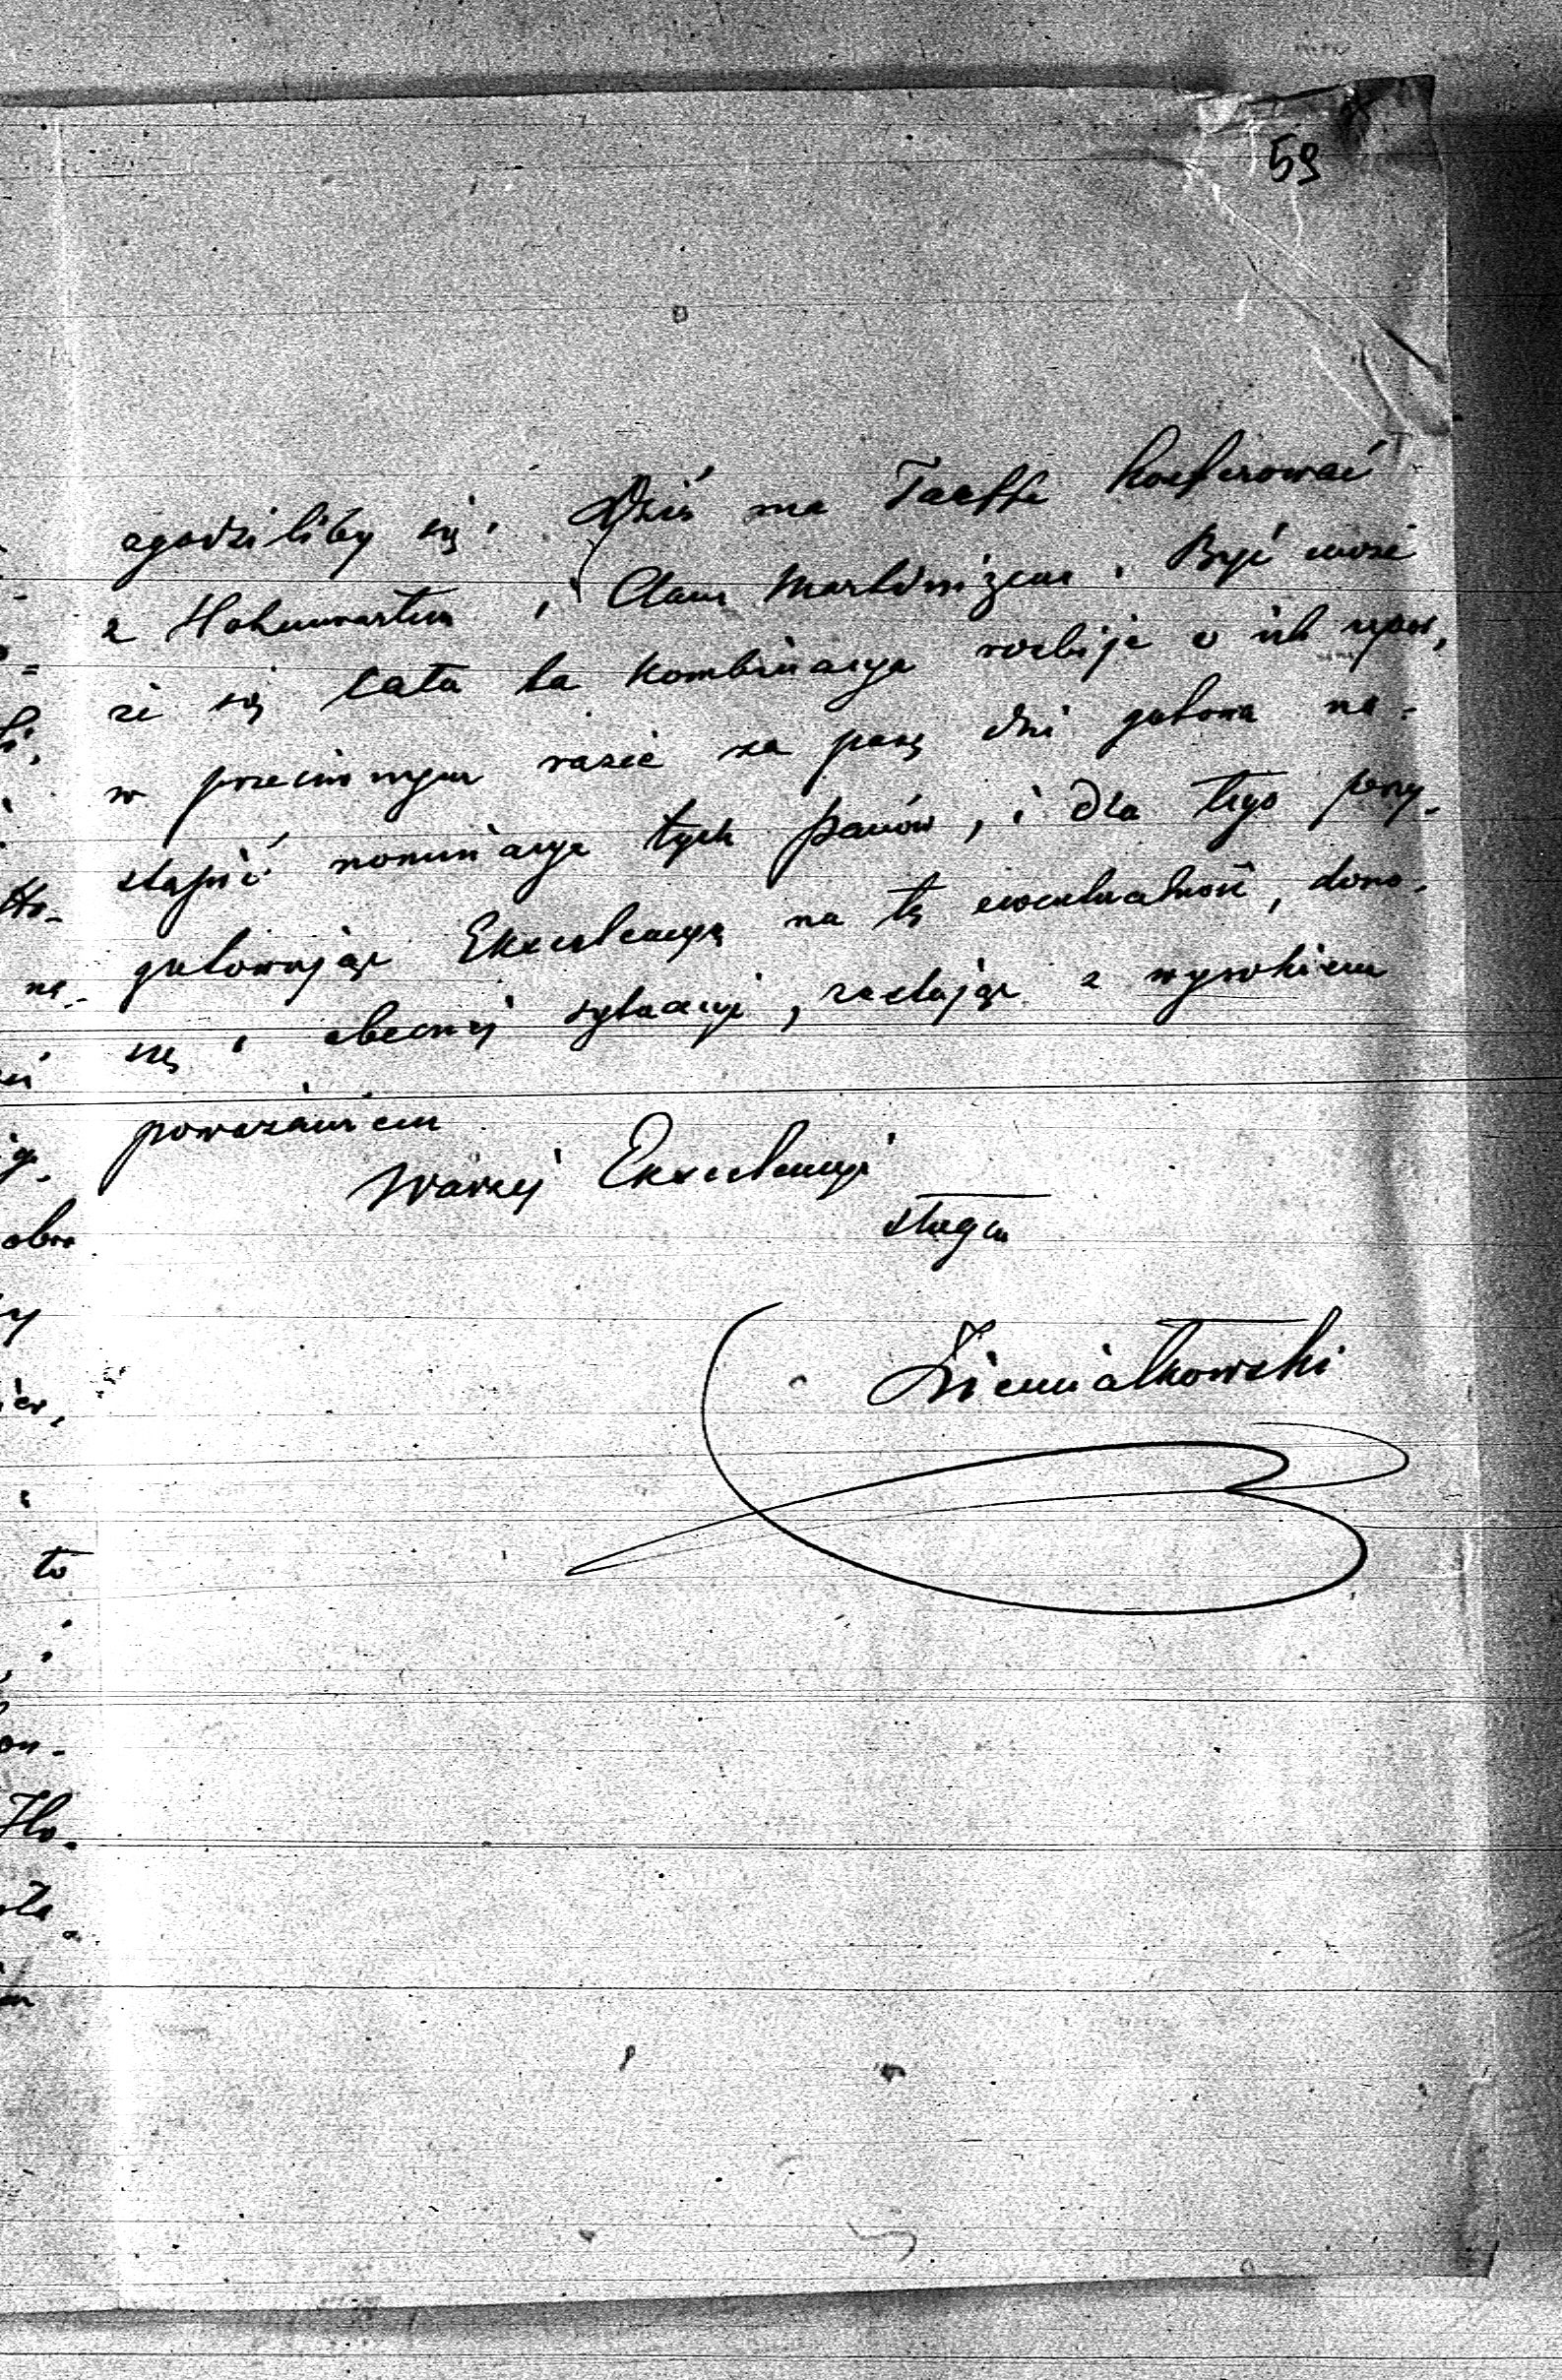 59
zgodziliby się. Dziś ma Taaffe konferować
z Hohenwartem i Clam Martinizem. Być może
że się cała ta kombinacya rozbije o ich upór,
w przeciwnym razie za parę dni gotowa na-
stąpić nominacya tych panów, i dla tego przy-
gotowując Excelencyą na tę ewentualność, dono-
szę o obecnej sytuacyi, zostając z wysokiem
poważaniem
Waszej Excelencyi
sługa
Ziemiałkowski